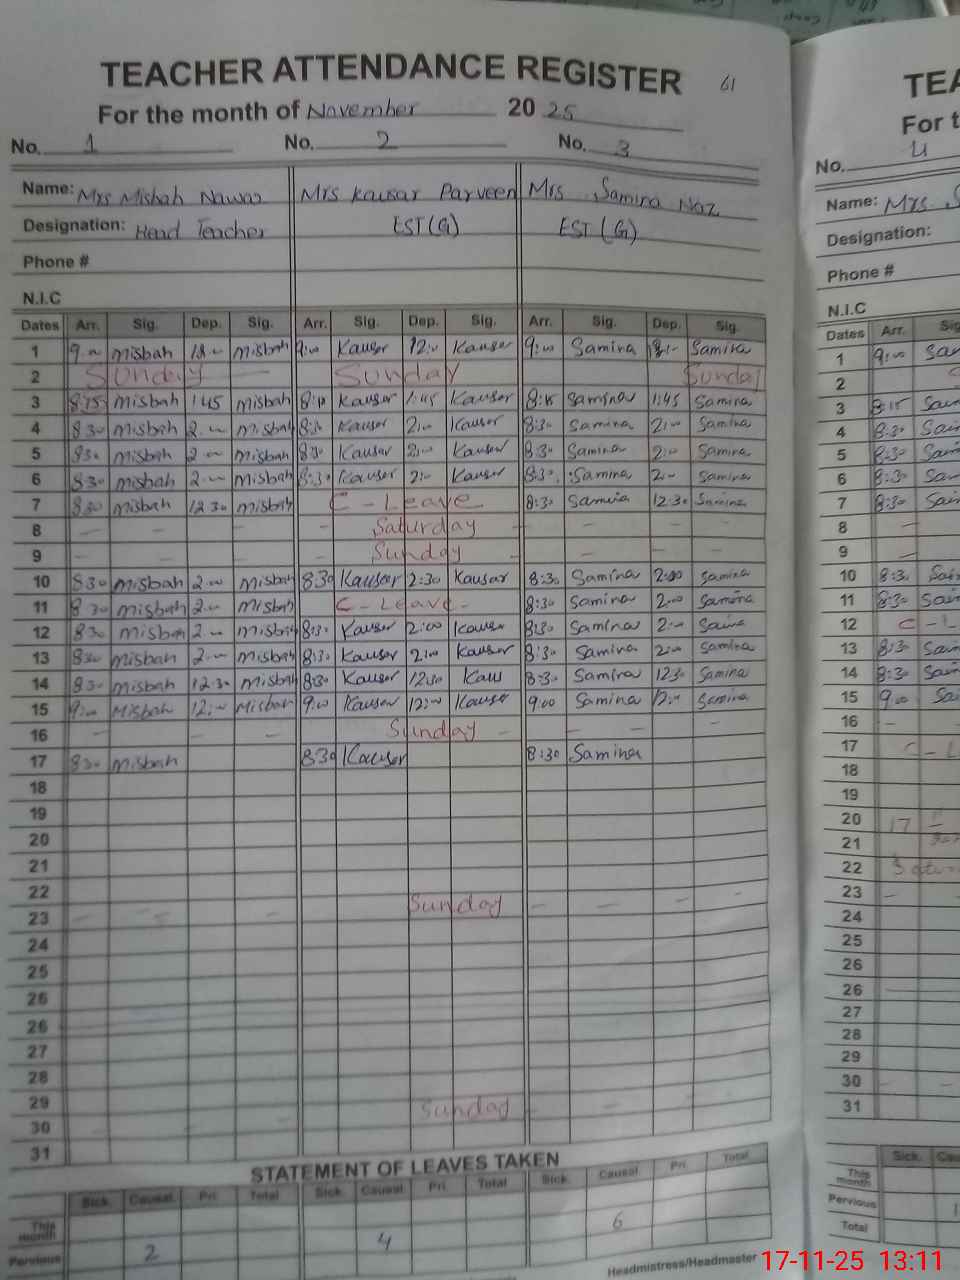 TEACHER ATTENDANCE REGISTER 61
For the month of November 20 25
No. 1 No. 2 No. 3
Name: Mrs Misbah Nawaz Mrs Kausar Parveen Mrs. Samina Naz
Designation: Head Teacher EST(G) EST(G)
Phone #
N.I.C
Dates Arr. Sig. Dep. Sig. Arr. Sig. Dep. Sig. Arr. Sig. Dep. Sig.
1 9:00 Misbah 12:00 Misbah 9:00 Kausar 12:00 Kausar 9:00 Samina Samina
2 Sunday — Sunday Sunday
3 8:15 Misbah 1:45 Misbah Kausar 1:45 Kausar 8:15 Samina 1:45 Samina
4 8:30 Misbah 2:00 Misbah 8:30 Kausar 2:00 Kausar 8:30 Samina 2:00 Samina
5 8:30 Misbah 2:00 Misbah 8:30 Kausar 2:00 Kausar 8:30 Samina 2:00 Samina
6 8:30 Misbah 2:00 Misbah 8:30 Kausar 2:00 Kausar 8:30 Samina 2:00 Samina
7 8:30 Misbah 12:30 Misbah C-Leave 8:30 Samina 12:30 Samina
8 — — — — Saturday — — — —
9 — — — — Sunday — — — —
10 8:30 Misbah 2:00 Misbah 8:30 Kausar 2:30 Kausar 8:30 Samina 2:00 Samina
11 8:30 Misbah 2:00 Misbah C-Leave- 8:30 Samina 2:00 Samina
12 8:30 Misbah 2:00 Misbah 8:30 Kausar 2:00 Kausar 8:30 Samina 2:00 Samina
13 8:30 Misbah 2:00 Misbah 8:30 Kausar 2:00 Kausar 8:30 Samina 2:00 Samina
14 8:30 Misbah 12:30 Misbah 8:30 Kausar 12:30 Kaus 8:30 Samina 12:30 Samina
15 9:00 Misbah 12:00 Misbah 9:00 Kausar 12:00 Kausar 9:00 Samina 12:00 Samina
16 — — — Sunday — — —
17 8:30 Misbah 8:30 Kausar 8:30 Samina
18
19
20
21
22
23 — — — Sunday — — — —
24
25
26
26
27
28
29
30 — — Sunday — — —
31
STATEMENT OF LEAVES TAKEN
Sick. Causal Pri. Total Sick. Causal Pri. Total Sick. Causal Pri. Total
This month 6
Pervious 2 4
Headmistress/Headmaster
TEA
For t
No. 4
Name: Mrs. S
Designation:
Phone #
N.I.C
Dates Arr. Sig
1 9:00 Sam
2
3 8:15 Sam
4 8:30 Sam
5 8:30 Sam
6 8:30 Sam
7 8:30 Sam
8 —
9 —
10 8:30 Sam
11 8:30 Sam
12 C-L
13 8:30 Sam
14 8:30 Sam
15 9:00 Sa
16 — —
17 C-L
18
19
20 17
21
22
23 —
24
25
26
26
27
28
29
30 — —
31
Sick. Cau
This month
Pervious 1
Total
17-11-25 13:11